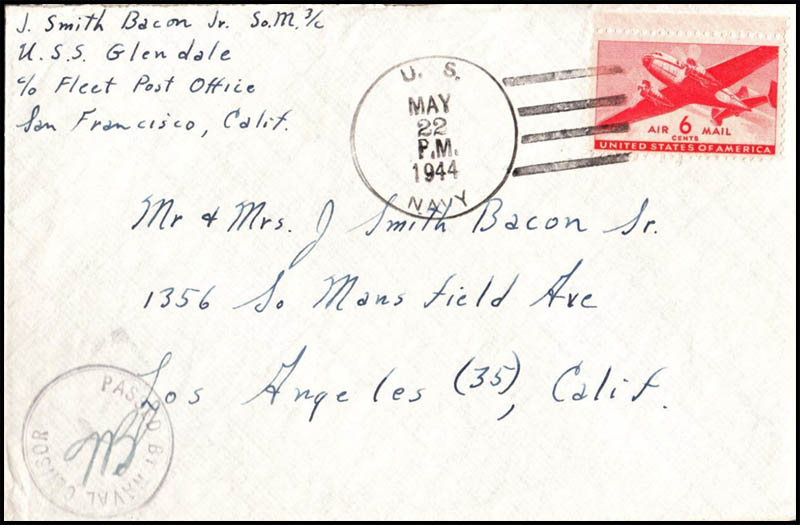 J. Smith Bacon Jr. So.M. 3/c
U.S.S. Glendale
c/o Fleet Post Office
San Francisco, Calif.
U. S.
MAY
22
P.M.
1944
NAVY
AIR 6 MAIL
CENTS
UNITED STATES OF AMERICA
Mr & Mrs. J Smith Bacon Sr.
1356 So Mansfield Ave
Los Angeles (35), Calif.
PASSED BY NAVAL CENSOR